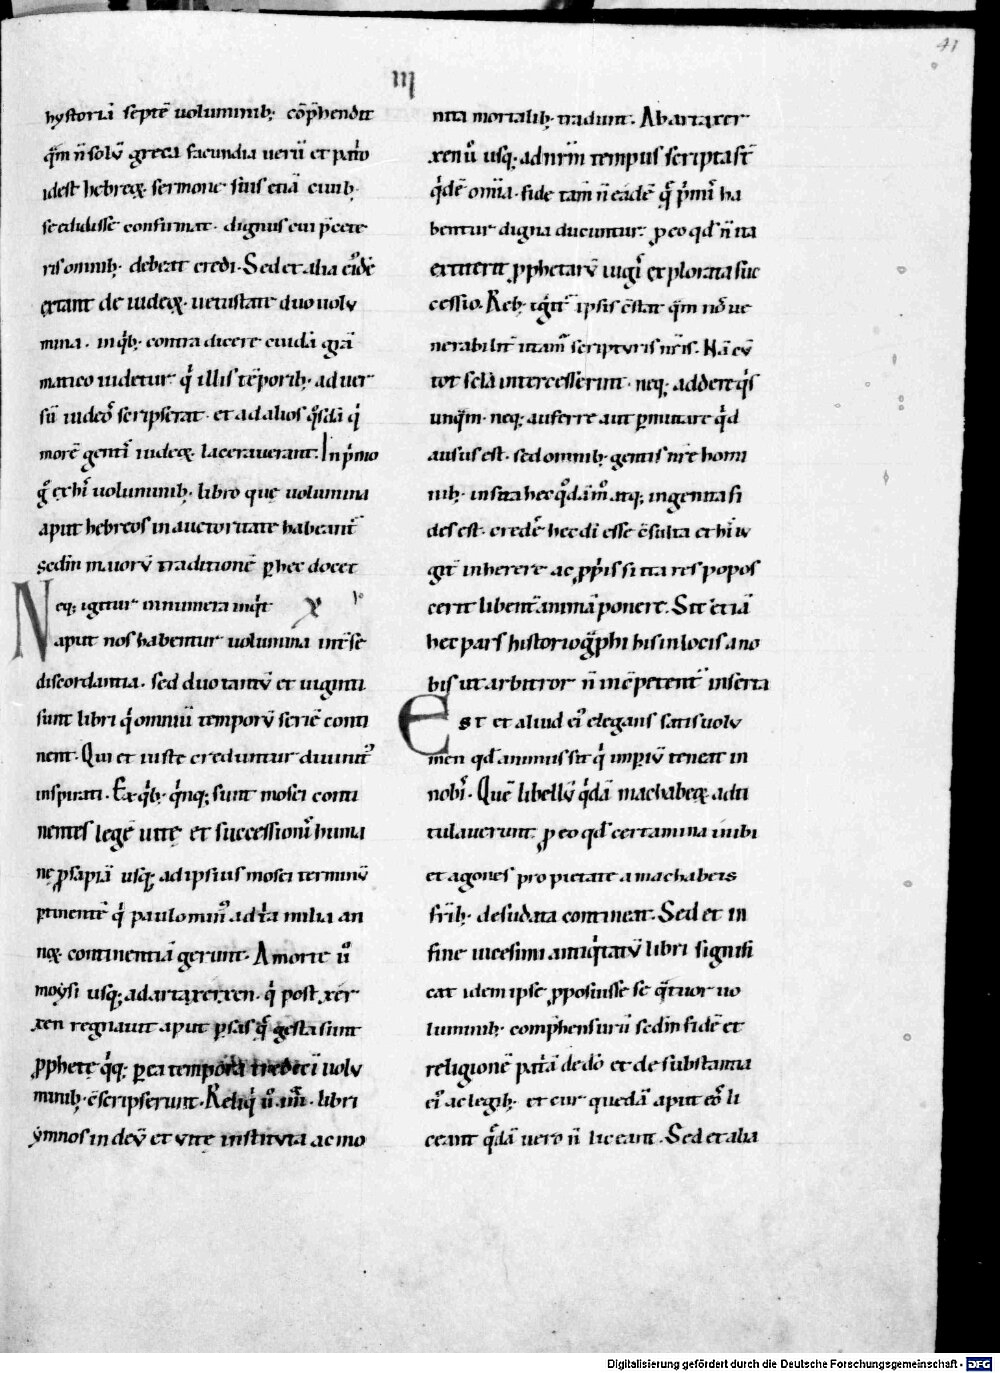 41
III
hystoriā septē uoluminib; cōp̄hendit
q̄m n̄ solū greca facundia uerū et patͥo
idest hebreoꝝ sermone suis etiā ciuib;
se edidisse confirmat. dignus cui p̄cete
ris omnib; debeat credi. Sed et alia eiꝰdē
extant de iudeoꝝ uetustate duo uolu
mina. inqͥb; contra dicere cuidā grā
matico uidetur qͥ illis tēporib; aduer
sū iudeos scripserat. et ad alios qͦsdā qͥ
morē gentis iudeoꝝ lacerauerant. In pͥmo
gͦ ex his uoluminib; libro que uolumina
aput hebreos in auctoritate habeant̄
sed in maiorū traditionē ꝑ hec docet
Neq; igitur innumera inqͥt
aput nos habentur uolumina int̄ se
discordantia. sed duo tantū et uiginti
sunt libri qͥ omniū temporū seriē conti
nent. Qui et iuste creduntur diuinitꝰ
inspirati. Ex qͥb; qͥnq; sunt mosei conti
nentes legē uitę et successionis huma
nę ꝓsapiā usq; ad ipsius mosei terminū
ꝑtinentē qͥ paulo minꝰ ad tͥa milia an
noꝝ continentiā gerunt. A morte ū
moẏsi usq; ad artaxerxen. qͥ post xer
xen regnauit aput ꝑsas qͣ gesta sunt
ꝓphetę qͥq; ꝑ ea tempora tredeci uolu
minib; c̄scripserunt. Reliqͥ ū .iiii. libri
ẏmnos in deū et uitę instituta ac mo
nita mortalib; tradunt. Ab artaxer
xen ū usq; ad nr̄m tempus scripta st̄
qͥdē om̄ia. fide tam̄ n̄ eadē qͣ pͥmi ha
bentur digna ducuntur. ꝓ eo qd̄ n̄ ita
extiterit ꝓphetarū iugis explorata suc
cessio. Reb; igit̄ ipsis c̄stat q̄m nos ue
nerabilit̄ utam̄ scripturis nr̄is. Nā cū
tot scl̄a intercesserint. neq; addere qͥs
unqͣm. neq; auferre aut ꝑmutare qͥd
ausus est. sed omnib; gentis nr̄e homi
nib; insita hec qͦdāmͦ atq; ingenita fi
des est. credere hec di esse c̄sulta et his iu
git̄ inherere ac ꝓ pͥis si ita res popos
cerit libent̄ animā ponere. Sit etiā
hec pars historiogͣphi his in locis a no
bis ut arbitror n̄ inc̄petent̄ inserta
Est et aliud eiꝰ elegans satis uolu
men qd̄ animus sit qͥ imꝑiū teneat in
nobis. Quē libellū qͥdā machabeoꝝ adti
tulauerunt ꝓ eo qd̄ certamina inibi
et agones pro pietate a machabeis
fr̄ib; desudata contineat. Sed et in
fine uicesimi antiqͥtatū libri signifi
cat idem ipse ꝓposuisse se qͣtuor uo
luminib; comp̄hensurū sed in fidē et
religionē patͥā de dō et de substantia
eiꝰ ac legib; et cur quedā aput eos li
ceant qͣdā uero n̄ liceant. Sed et alia
Digitalisierung gefördert durch die Deutsche Forschungsgemeinschaft - DFG